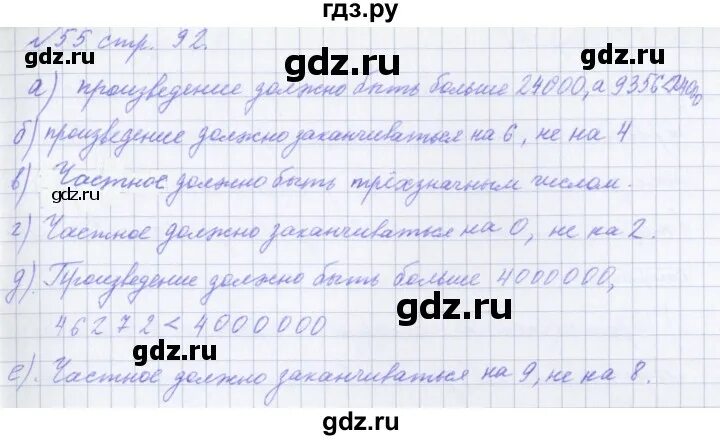 гдз.ру
№55 стр. 92.
а) произведение должно быть больше 24000, а 9356<24000
б) произведение должно заканчиваться на 6, не на 4
в) Частное должно быть трёхзначным числом.
г) Частное должно заканчиваться на 0, не на 2.
д). Произведение должно быть больше 4000000,
46272 < 4000000
е). Частное должно заканчиваться на 9, не на 8.
gdz.ru
gdz.ru
gdz.ru
gdz.ru
gdz.ru
gdz.ru
gdz.ru
gdz.ru
gdz.ru
gdz.ru